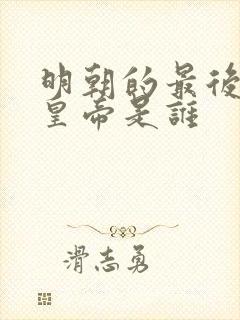 明朝的最後
皇帝是誰
滑志勇